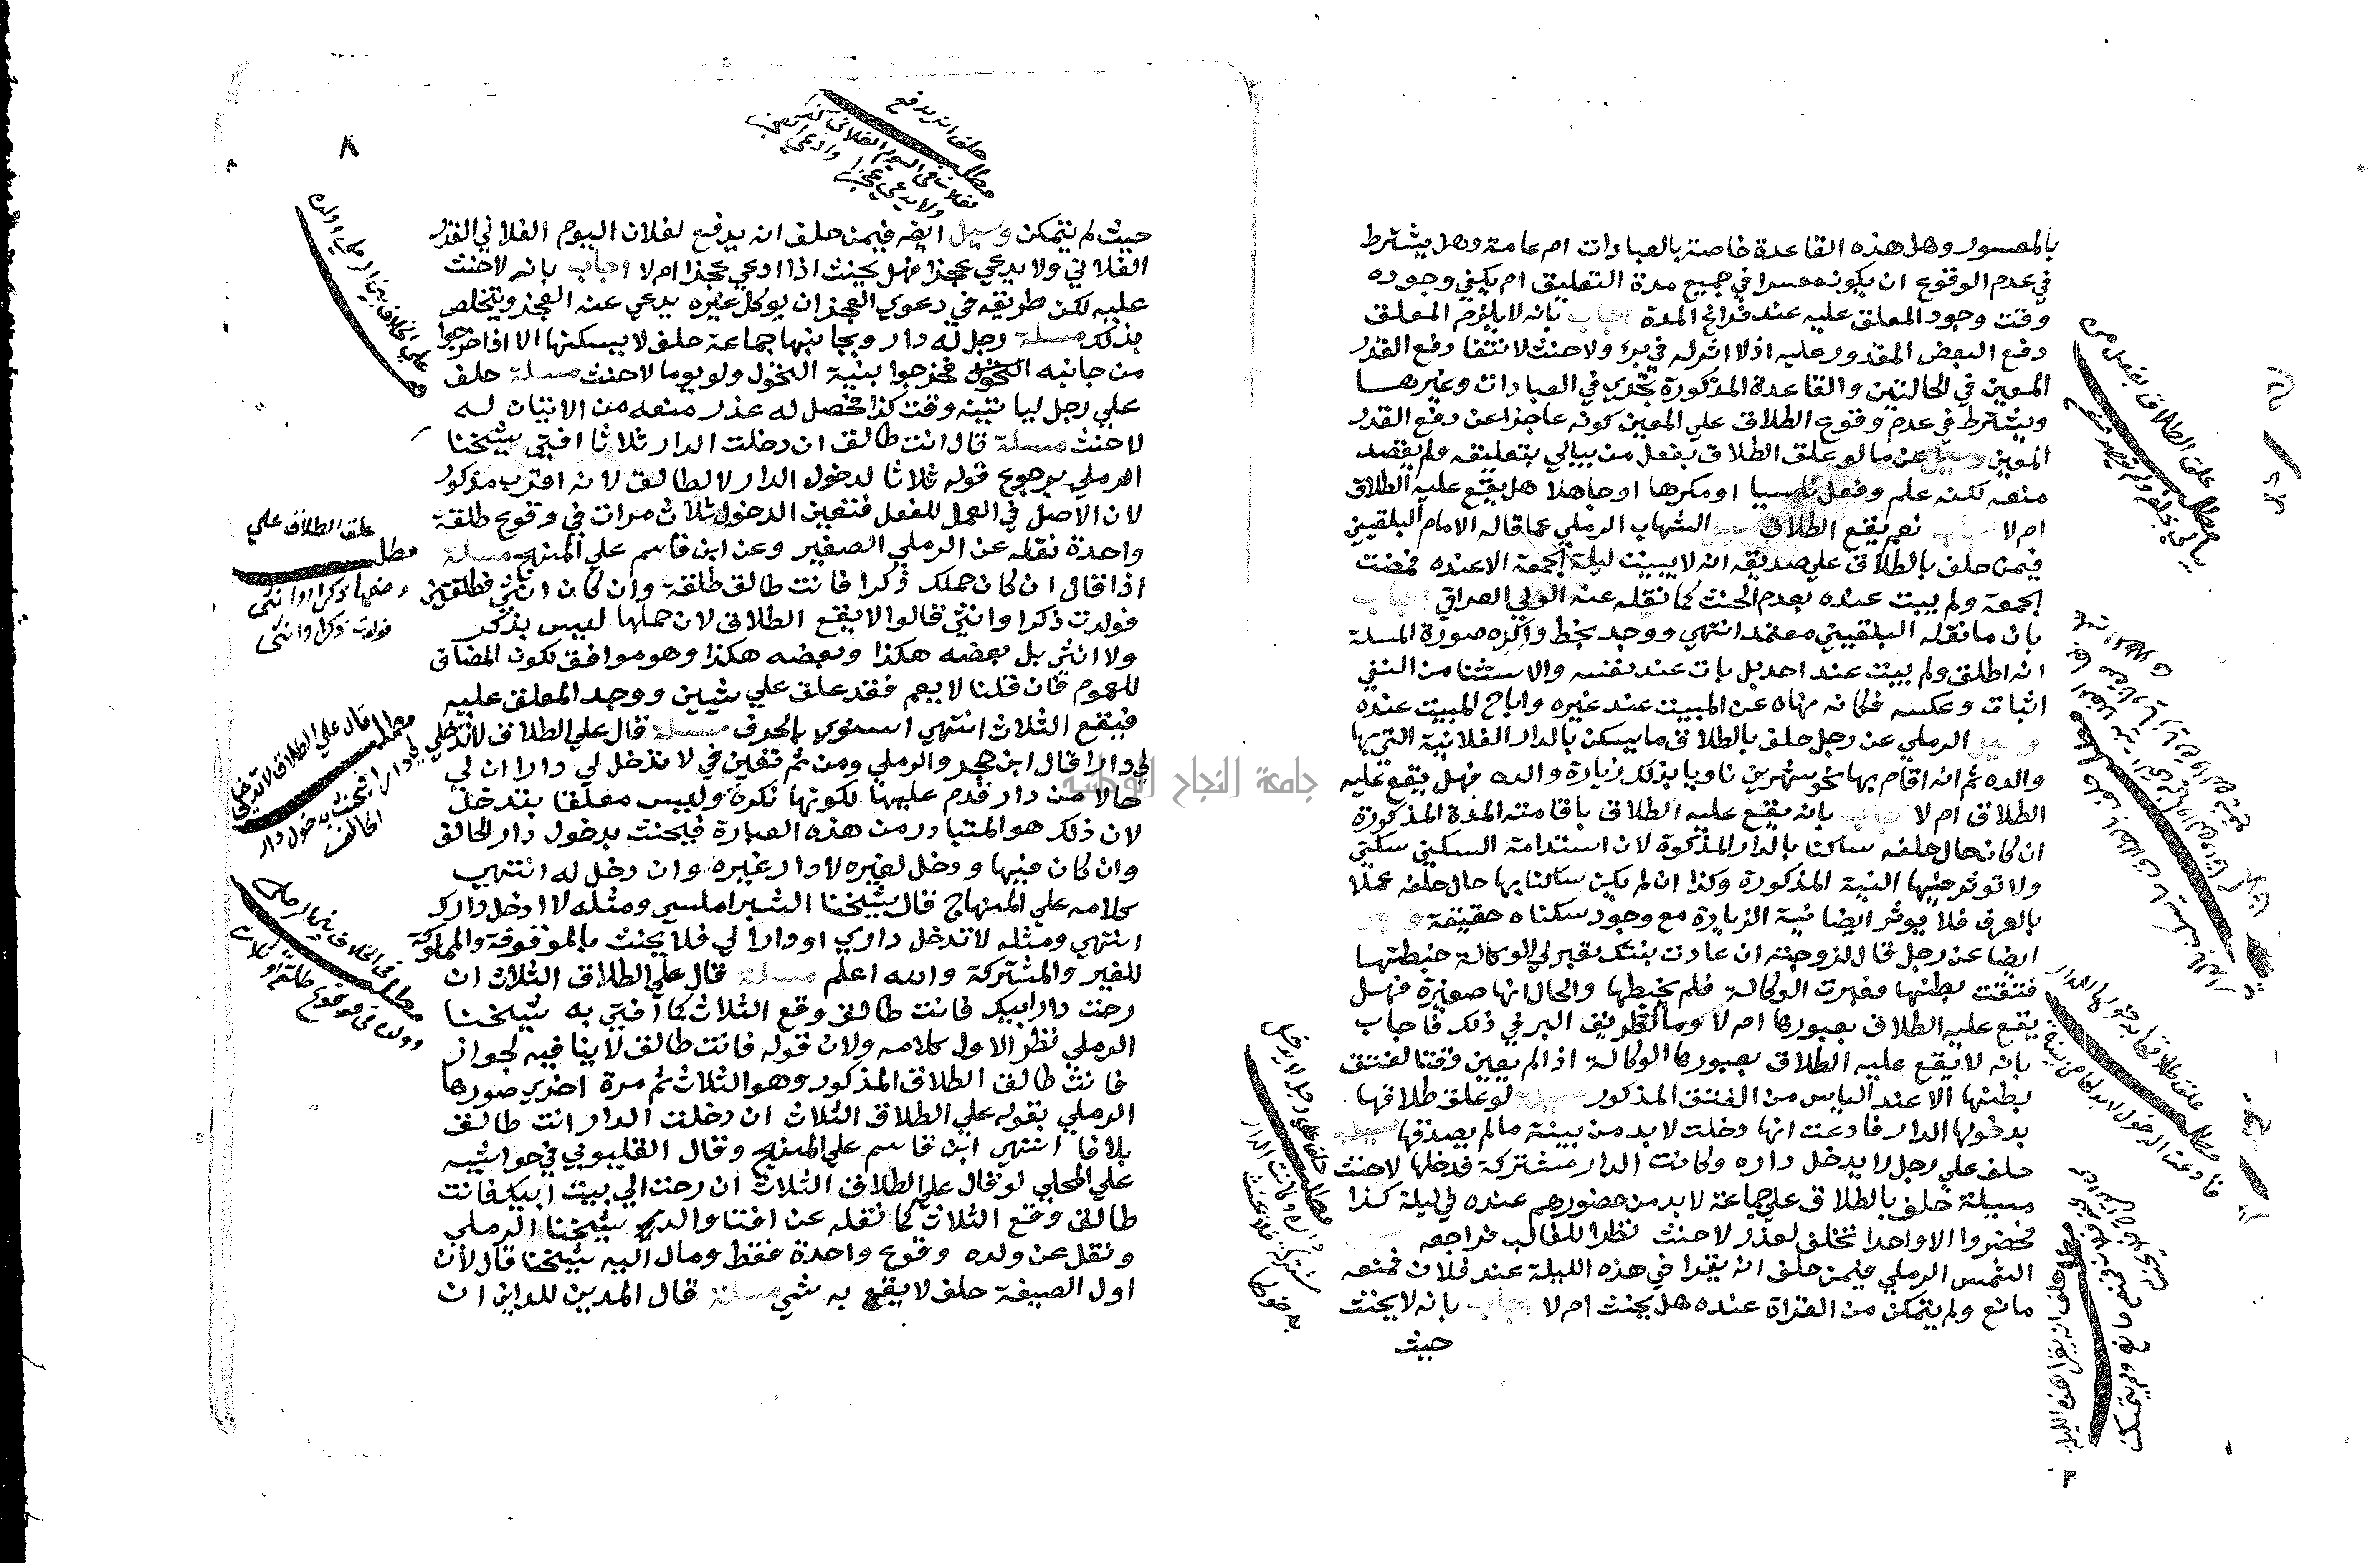 بالمعسور وهل هذه القاعدة خاصة بالعبادات ام عامة وهل يشترط
في عدم الوقوع ان يكون معسرا في جميع مدة التعليق ام يكفي وجوده
وقت وجود المعلق عليه عند فراغ المدة اجاب بانه لا يلزم المعلق
دفع البعض المقدور عليه اذ لا اثر له في بر ولا حنث لانتفا دفع القدر
المعين في الحالتين والقاعدة المذكورة تجري في العبادات وغيرها
ويشترط في عدم وقوع الطلاق علي المعين كونه عاجزا عن دفع القدر
المعين وسيل عن ما لو علق الطلاق بفعل من يبالي بتعليقه ولم يقصد
منعه لكنه علم وفعل ناسيا او مكرها او جاهلا هل يقع عليه الطلاق
ام لا اجاب نعم يقع الطلاق الشهاب الرملي عما قاله الامام البلقيني
فيمن حلف بالطلاق علي صديقه انه لا يبيت ليلة الجمعة الا عنده فمضت
الجمعة ولم يبت عنده بعدم الحنث كما نقله عنه الولي العراقي اجاب
بان ما نقله البلقيني معتمد انتهي ووجد بخط ولده صورة المسلة
انه اطلق ولم يبت عند احد بل بات عند نفسه والاستثنا من النفي
اثبات وعكسه فكانه نهاه عن المبيت عند غيره واباح المبيت عنده
وسيل الرملي عن رجل حلف بالطلاق ما يسكن بالدار الفلانية التي بها
والده ثم انه اقام بها نحو شهرين ناويا بذلك زيارة والده فهل يقع عليه
الطلاق ام لا اجاب بانه يقع عليه الطلاق باقامته المدة المذكورة
ان كان حال حلفه ساكنا بالدار المذكورة لان استدامة السكني سكني
ولا توثر فيها النية المذكورة وكذا ان لم يكن ساكنا بها حال حلفه عملا
بالعرف فلا يوثر ايضا نية الزيارة مع وجود سكناه حقيقة وسيل
ايضا عن رجل قال لزوجته ان عادت بنتك تعبر لي الوكالة خبطتها
فتقت بطنها فعبرت الوكالة فلم يخبطها والحال انها صغيرة فهل
يقع عليه الطلاق بعبورها ام لا وما طريق البر في ذلك فاجاب
بانه لا يقع عليه الطلاق بعبورها الوكالة اذ لم يعين وقتا لفتق
بطنها الا عند الياس من الفتق المذكور مسيلة لو علق طلاقها
بدخولها الدار فادعت انها دخلت لا بد من بينة ما لم يصدقها مسيلة
حلف علي رجل لا يدخل داره وكانت الدار مشتركة فدخلها لا حنث
مسيلة حلف بالطلاق علي جماعة لا بد من حضورهم عنده في ليلة كذا
فحضروا الا واحدا تخلف لعذر لا حنث نظرا للغالب فراجعه
الشمس الرملي فيمن حلف انه يقرا في هذه الليلة عند فلان فمنعه
مانع ولم يتمكن من القراة عنده هل يحنث ام لا اجاب بانه لا يحنث
حيث
٨
حلف انه يدفع
مطلب
لفلان في اليوم الفلاني
ولا يدعي عجزا وادعي العجز
حيث لم يتمكن وسيل ايضه فيمن حلف انه يدفع لفلان اليوم الفلاني القدر
الفلاني ولا يدعي عجزا فهل يحنث اذا ادعي عجزا ام لا اجاب بانه لا حنث
عليه لكن طريقه في دعوي العجز ان يوكل غيره يدعي عنه العجز ويتخلص
بذلك مسلة رجل له دار وبجانبها جماعة حلف لا يسكنها الا اذا خرجوا
من جانبه فخرجوا بنية التحول ولو يوما لا حنث مسلة حلف
علي رجل لياتينه وقت كذا فحصل له عذر منعه من الاتيان له
لا حنث مسلة قال انت طالق ان دخلت الدار ثلاثا افتي شيخنا
الرملي برجوع قوله ثلاثا لدخول الدار لا لطالق لانه اقرب مذكور
لان الاصل في العمل للفعل فتعين الدخول ثلاث مرات في وقوع طلقة
واحدة نقله عن الرملي الصغير وعن ابن قاسم علي المنهج مسلة
اذا قال ان كان حملك ذكرا فانت طالق طلقة وان كان انثي فطلقتين
فولدت ذكرا وانثي قالوا لا يقع الطلاق لان حملها ليس بذكر
ولا انثي بل بعضه هكذا وبعضه هكذا وهو موافق لكون المضاف
للعموم فان قلنا لا يعم فقد علق علي شيين ووجد المعلق عليه
فيقع الثلاث انتهي اسنوي بالحرف مسلة قال علي الطلاق لا تدخلي
لي دارا قال ابن حجر والرملي ومن ثم تعين في لا تدخل لي دارا ان لي
حالا من دار قدم عليها لكونها نكرة وليس معلقا بتدخل
لان ذلك هو المتبادر من هذه العبارة فيحنث بدخول دار الحالف
وان كان فيها ودخل لغيره لا دار غيره وان دخل له انتهي
كلامه علي المنهاج قال شيخنا الشبراملسي ومثله لا ادخل دارك
انتهي ومثله لا تدخل داري او دارا لي فلا يحنث بالموقوفة والمملوكة
للغير والمشتركة والله اعلم مسلة قال علي الطلاق الثلاث ان
رحت دار ابيك فانت طالق وقع الثلاث كما افتي به شيخنا
الرملي نظرا لاول كلامه ولان قوله فانت طالق لا ينافيه لجواز
فانت طالق الطلاق المذكور وهو الثلاث ثم مرة اخري صورها
الرملي بقوله علي الطلاق الثلاث ان دخلت الدار انت طالق
بلا فا انتهي ابن قاسم علي المنهج وقال القليوبي في حواشيه
علي المحلي لو قال علي الطلاق الثلاث ان رحت الي بيت ابيك فانت
طالق وقع الثلاث كما نقله عن افتا والد شيخنا الرملي
ونقل عن ولده وقوع واحدة فقط ومال اليه شيخنا قال لان
اول الصيغة حلف لا يقع به شي مسلة قال المدين للداين ان
علق الطلاق علي
مطلب
وضعها ذكرا او انثي
فولدت ذكرا وانثي
مطلب
قال علي الطلاق لا تدخلي
لي دارا يحنث بدخول دار
الحالف